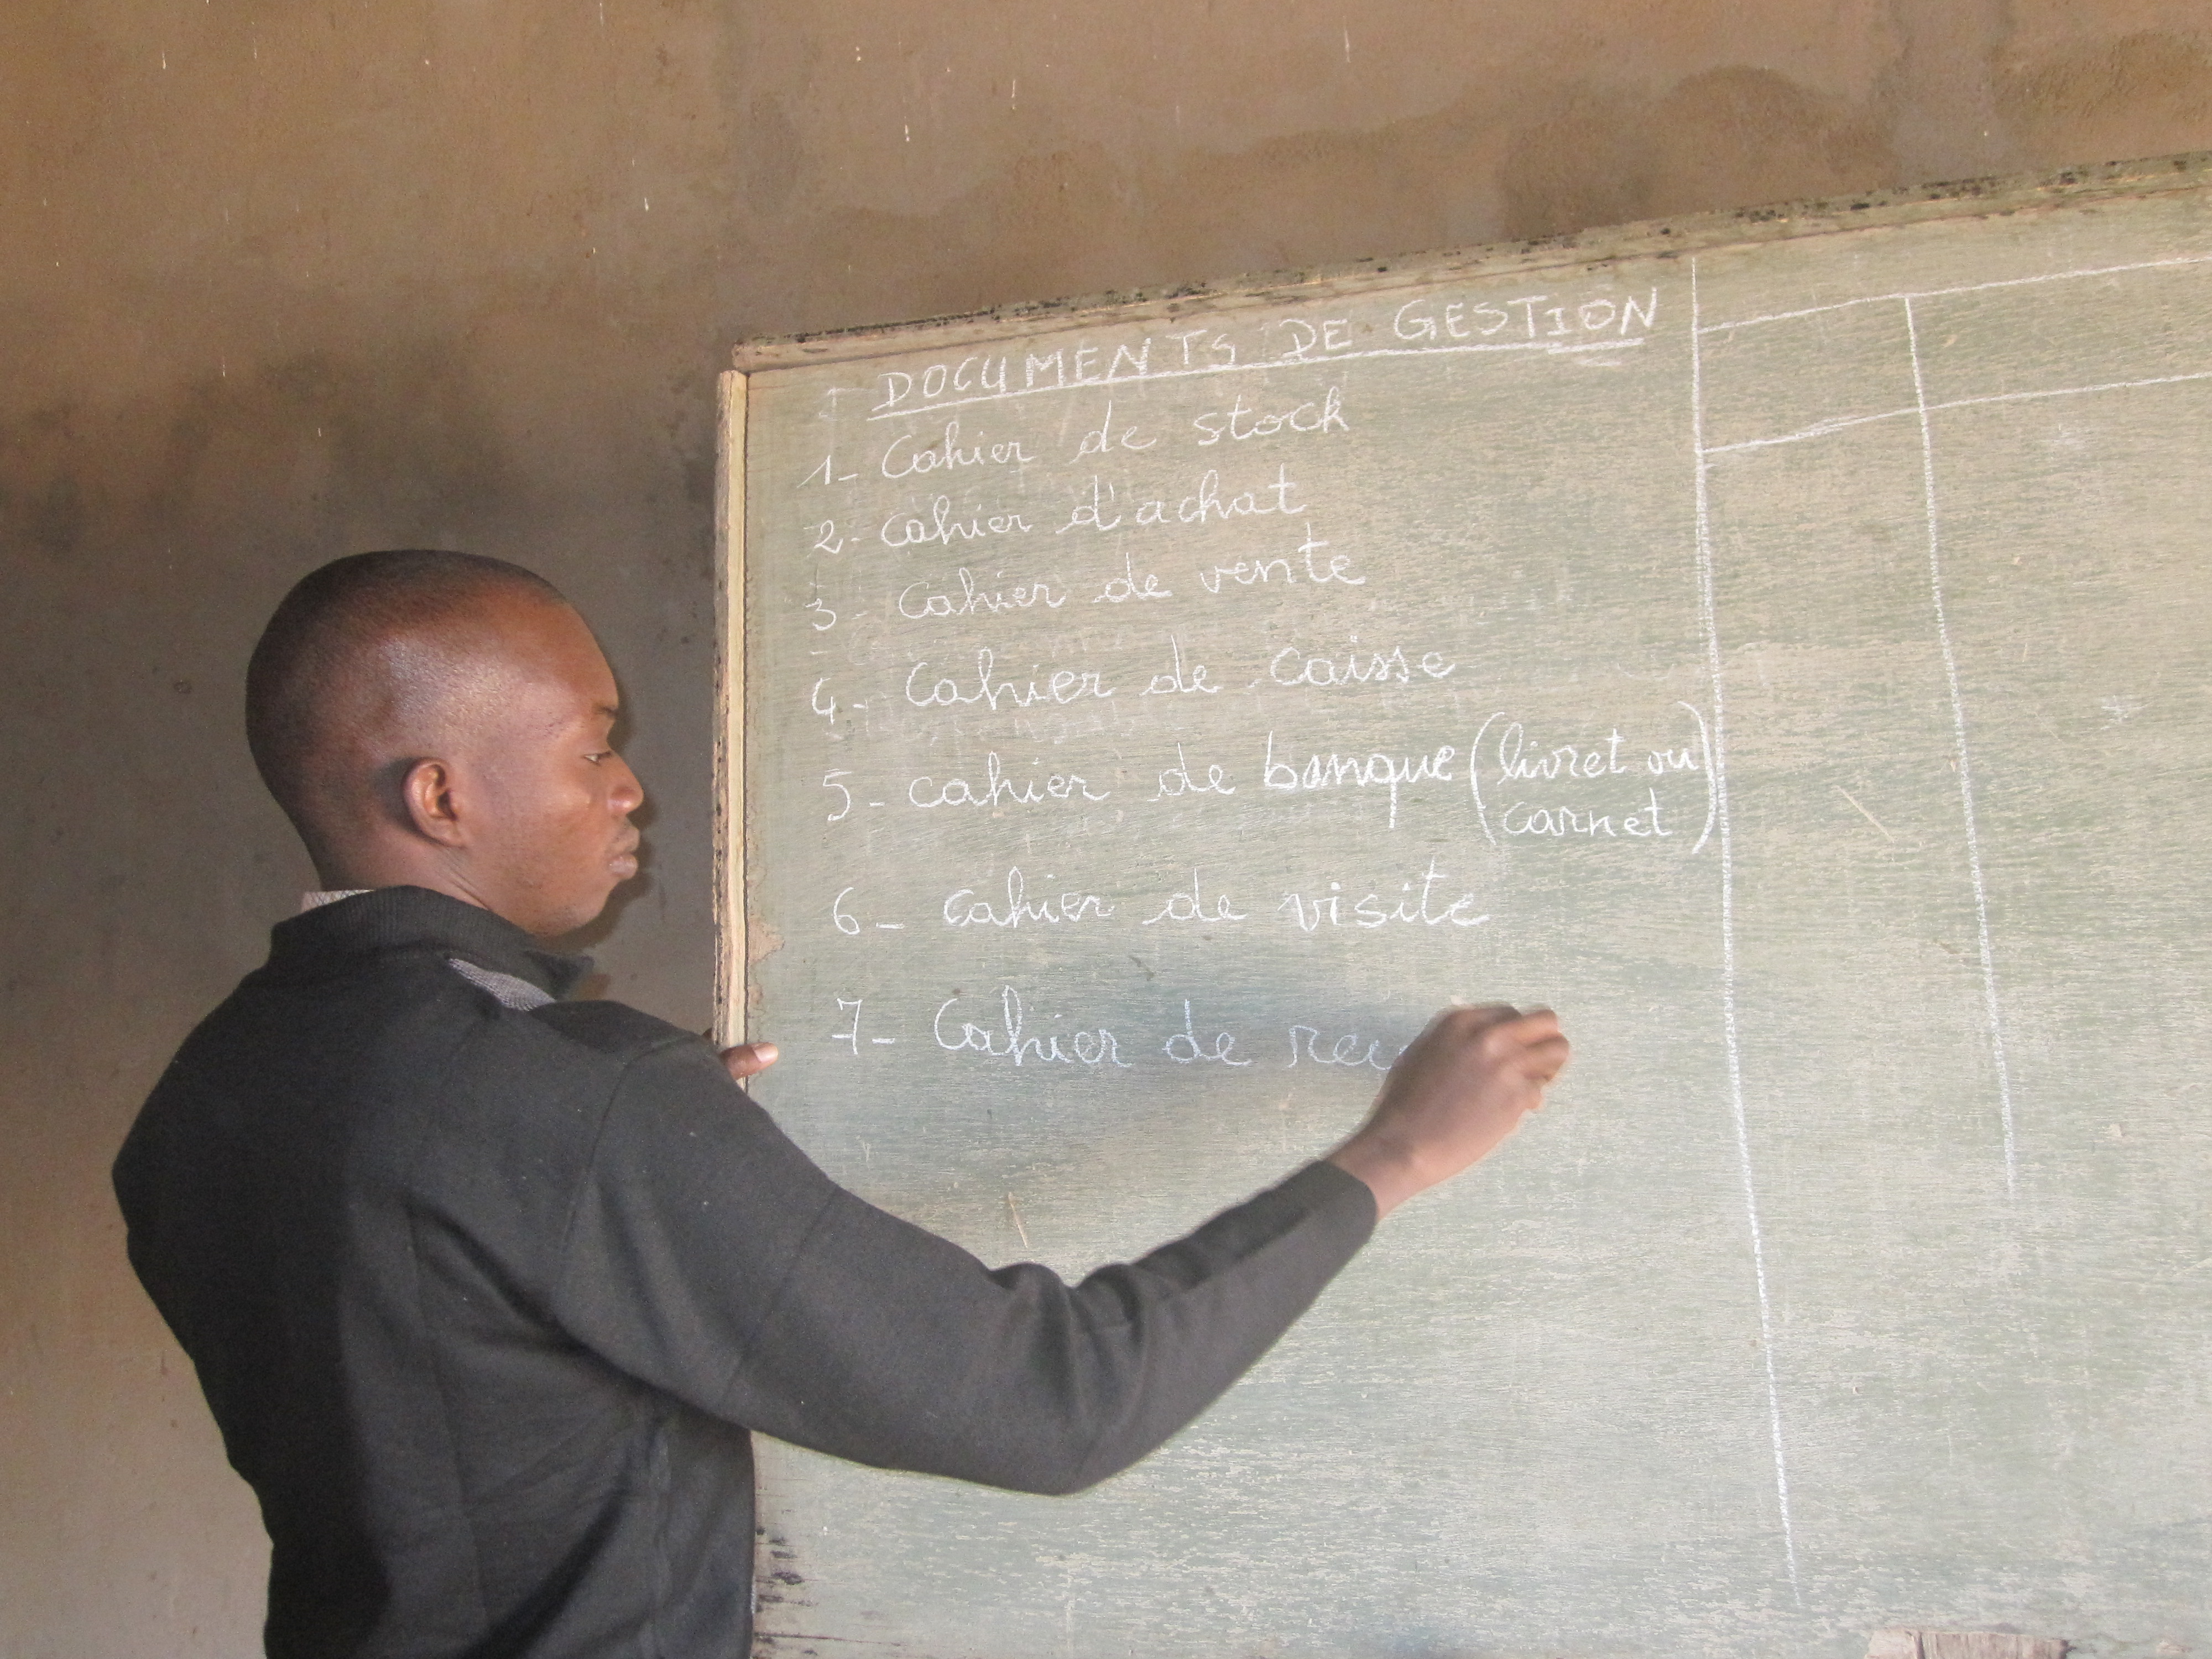 DOCUMENTS DE GESTION
1- Cahier de stock
2- Cahier d'achat
3- Cahier de vente
4- Cahier de caisse
5- cahier de banque (livret ou
carnet)
6- cahier de visite
7- Cahier de